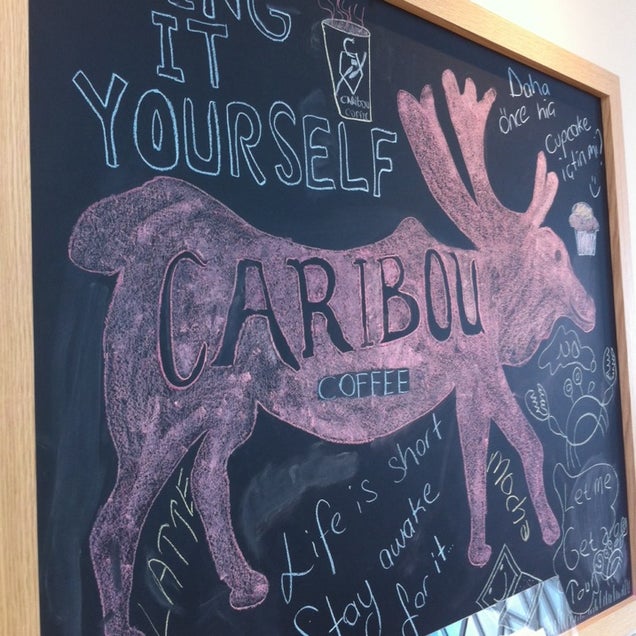 ING
IT
YOURSELF
CARIBOU
COFFEE
Daha
önce hiç
Cupcake
içtin mi?
CARIBOU
COFFEE
LATTE
Life is short
Stay awake
for it..
Mocha
Let me
Get